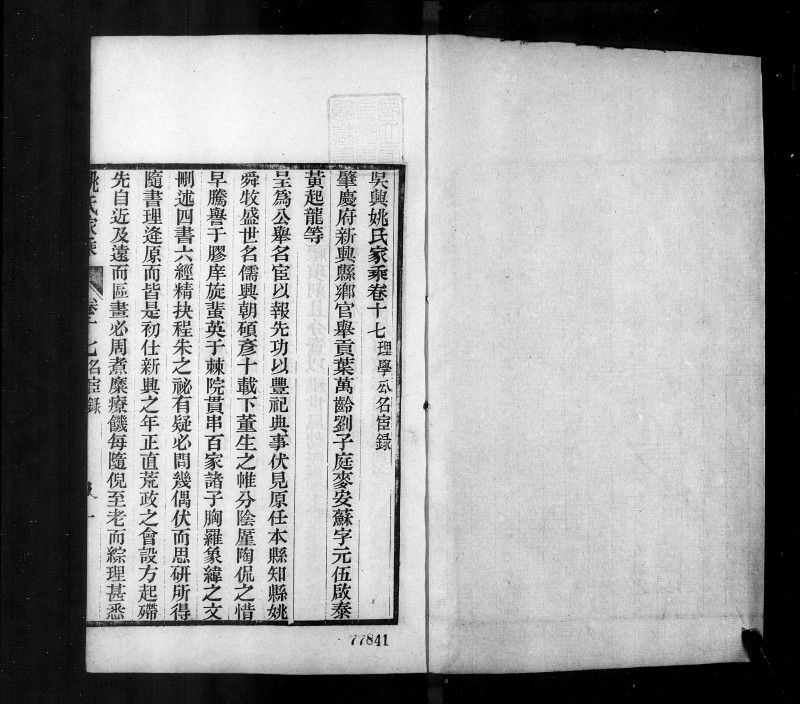 吳興姚氏家乘卷十七 理學公名宦錄
肇慶府新興縣鄉官舉貢葉萬齡劉子庭麥安蘇字元伍啟泰
黃起龍等
呈為公舉名宦以報先功以豐祀典事伏見原任本縣知縣姚
舜牧盛世名儒興朝碩彥十載下董生之帷分陰厪陶侃之惜
早騰譽于膠庠旋蜚英于棘院貫串百家諸子胸羅象緯之文
刪述四書六經精抉程朱之祕有疑必問幾偶伏而思研所得
隨書理逄原而皆是初仕新興之年正直荒政之會設方起殢
先自近及遠而區畫必周煮糜療饑每隨倪至老而綜理甚悉
姚氏家乘 卷十七名宦錄 一
77841